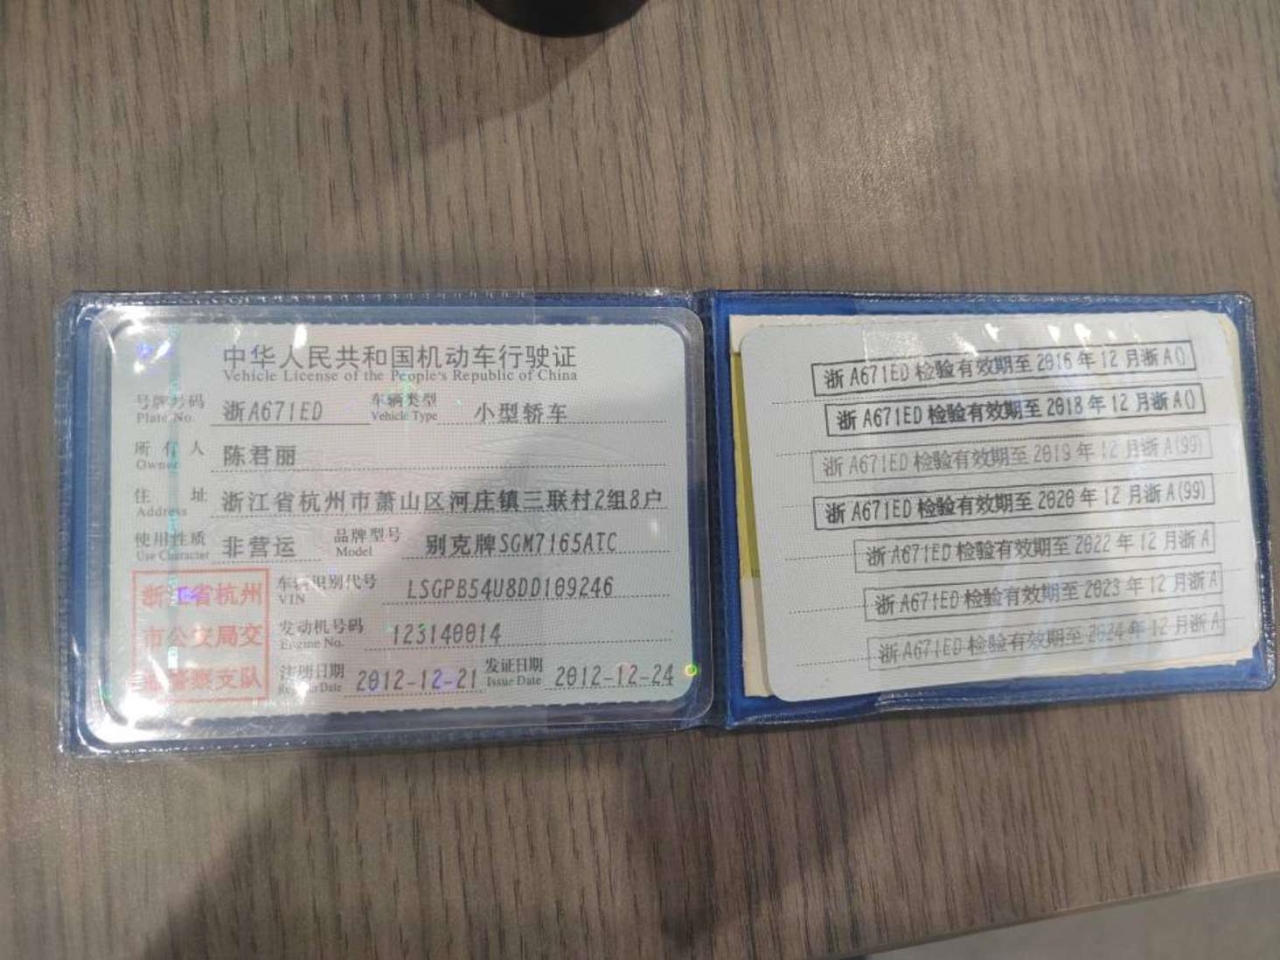 中华人民共和国机动车行驶证
Vehicle License of the People's Republic of China
号牌号码 浙A671ED 车辆类型 小型轿车
Plate No. Vehicle Type
所有人 陈君丽
Owner
住址 浙江省杭州市萧山区河庄镇三联村2组8户
Address
使用性质 非营运 品牌型号 别克牌SGM7165ATC
Use Character Model
车辆识别代号 LSGPB54U8DD109246
VIN
发动机号码 123140014
Engine No.
注册日期 2012-12-21 发证日期 2012-12-24
Register Date Issue Date
浙江省杭州
市公安局交
通警察支队
浙A671ED检验有效期至2016年12月浙A()
浙A671ED检验有效期至2018年12月浙A()
浙A671ED检验有效期至2019年12月浙A(99)
浙A671ED检验有效期至2020年12月浙A(99)
浙A671ED检验有效期至2022年12月浙A
浙A671ED检验有效期至2023年12月浙A
浙A671ED检验有效期至2024年12月浙A